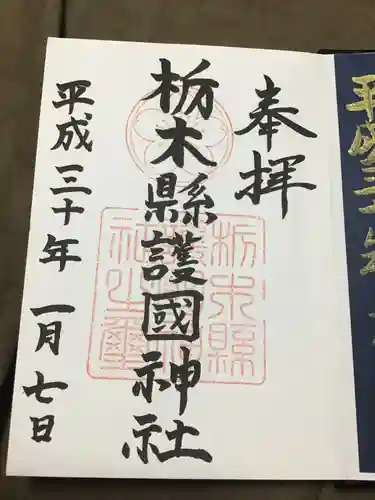 奉拝
栃木縣護國神社
平成三十年 一月七日
栃木縣
護國神
社之璽
平成三十年